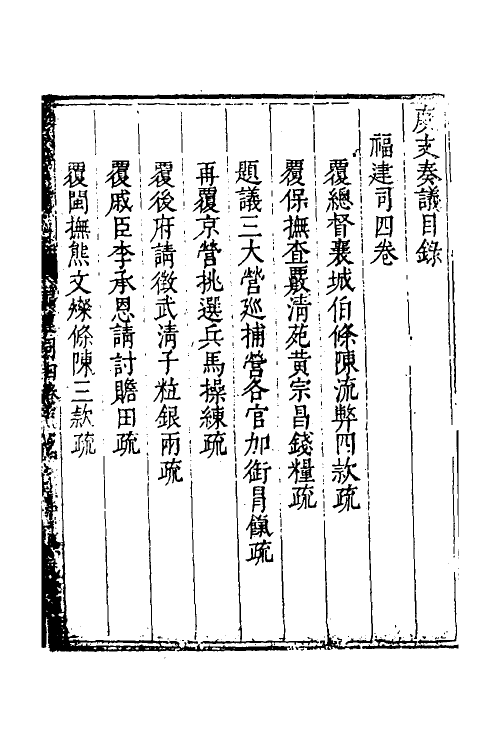 度支奏議目錄
福建司四卷
覆總督襄城伯條陳流弊四款疏
覆保撫查覈淸苑黃宗昌錢糧疏
題議三大營廵捕營各官加銜冐餼疏
再覆京營挑選兵馬操練疏
覆後府請徵武淸子粒銀兩疏
覆戚臣李承恩請討贍田疏
覆閩撫熊文燦條陳三款疏